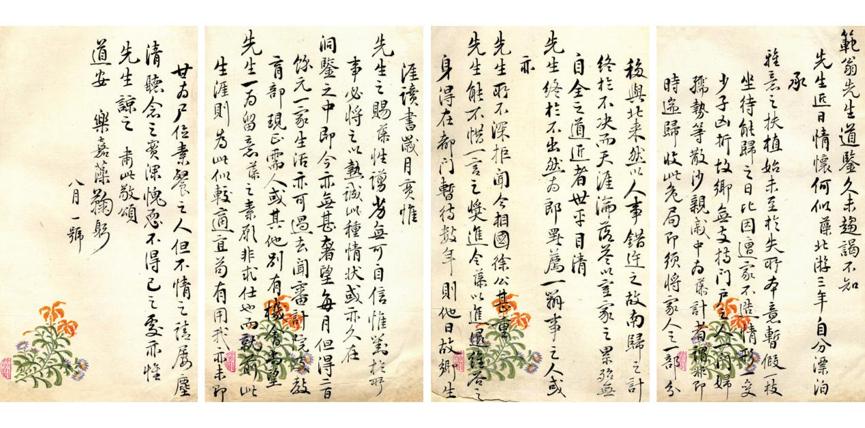 範翁先生道鑒久未趨謁不知
先生近日情懷何似藻北游三年自分漂泊
承
雅意之扶植始未至於失所本意暫假一枝
坐待能歸之日比因遭家不造情形一变
少子凶折故鄉無支持門戶之人
孀勢等散沙親開中為藻計者
時遄歸收此危局即須將家人之一部分
移與北來然以人事錯迕之故南歸之計
終於不决而天涯淪落苍以室家之累殆無
自全之道近者世平目清
先生終於不出然為郎舉薦一辦事之人或
亦
先生所不深拒聞今相國徐公甚
先生能不惜一言之奬進令藻以進
身得在都門暫待数年則他日故鄉生
涯讀書歲月實惟
先生之賜藻性譾劣無可自信惟對於所
事必將之以熱誠此種情状或亦久在
洞鑒之中即今亦無甚奢望每月但得二百
餘元一家生活亦可過去聞審計院教
育部現正需人或其他別有機會尚望
先生一為留意藻之素願非求仕也而就此
生涯則為此似較適宜苟有用我亦未即
甘为尸位素餐之人但不情之請屡塵
清聽念之實深愧恧不得已之處亦惟
先生諒之肅此敬頌
道安 樂嘉藻鞠躬
八月一號